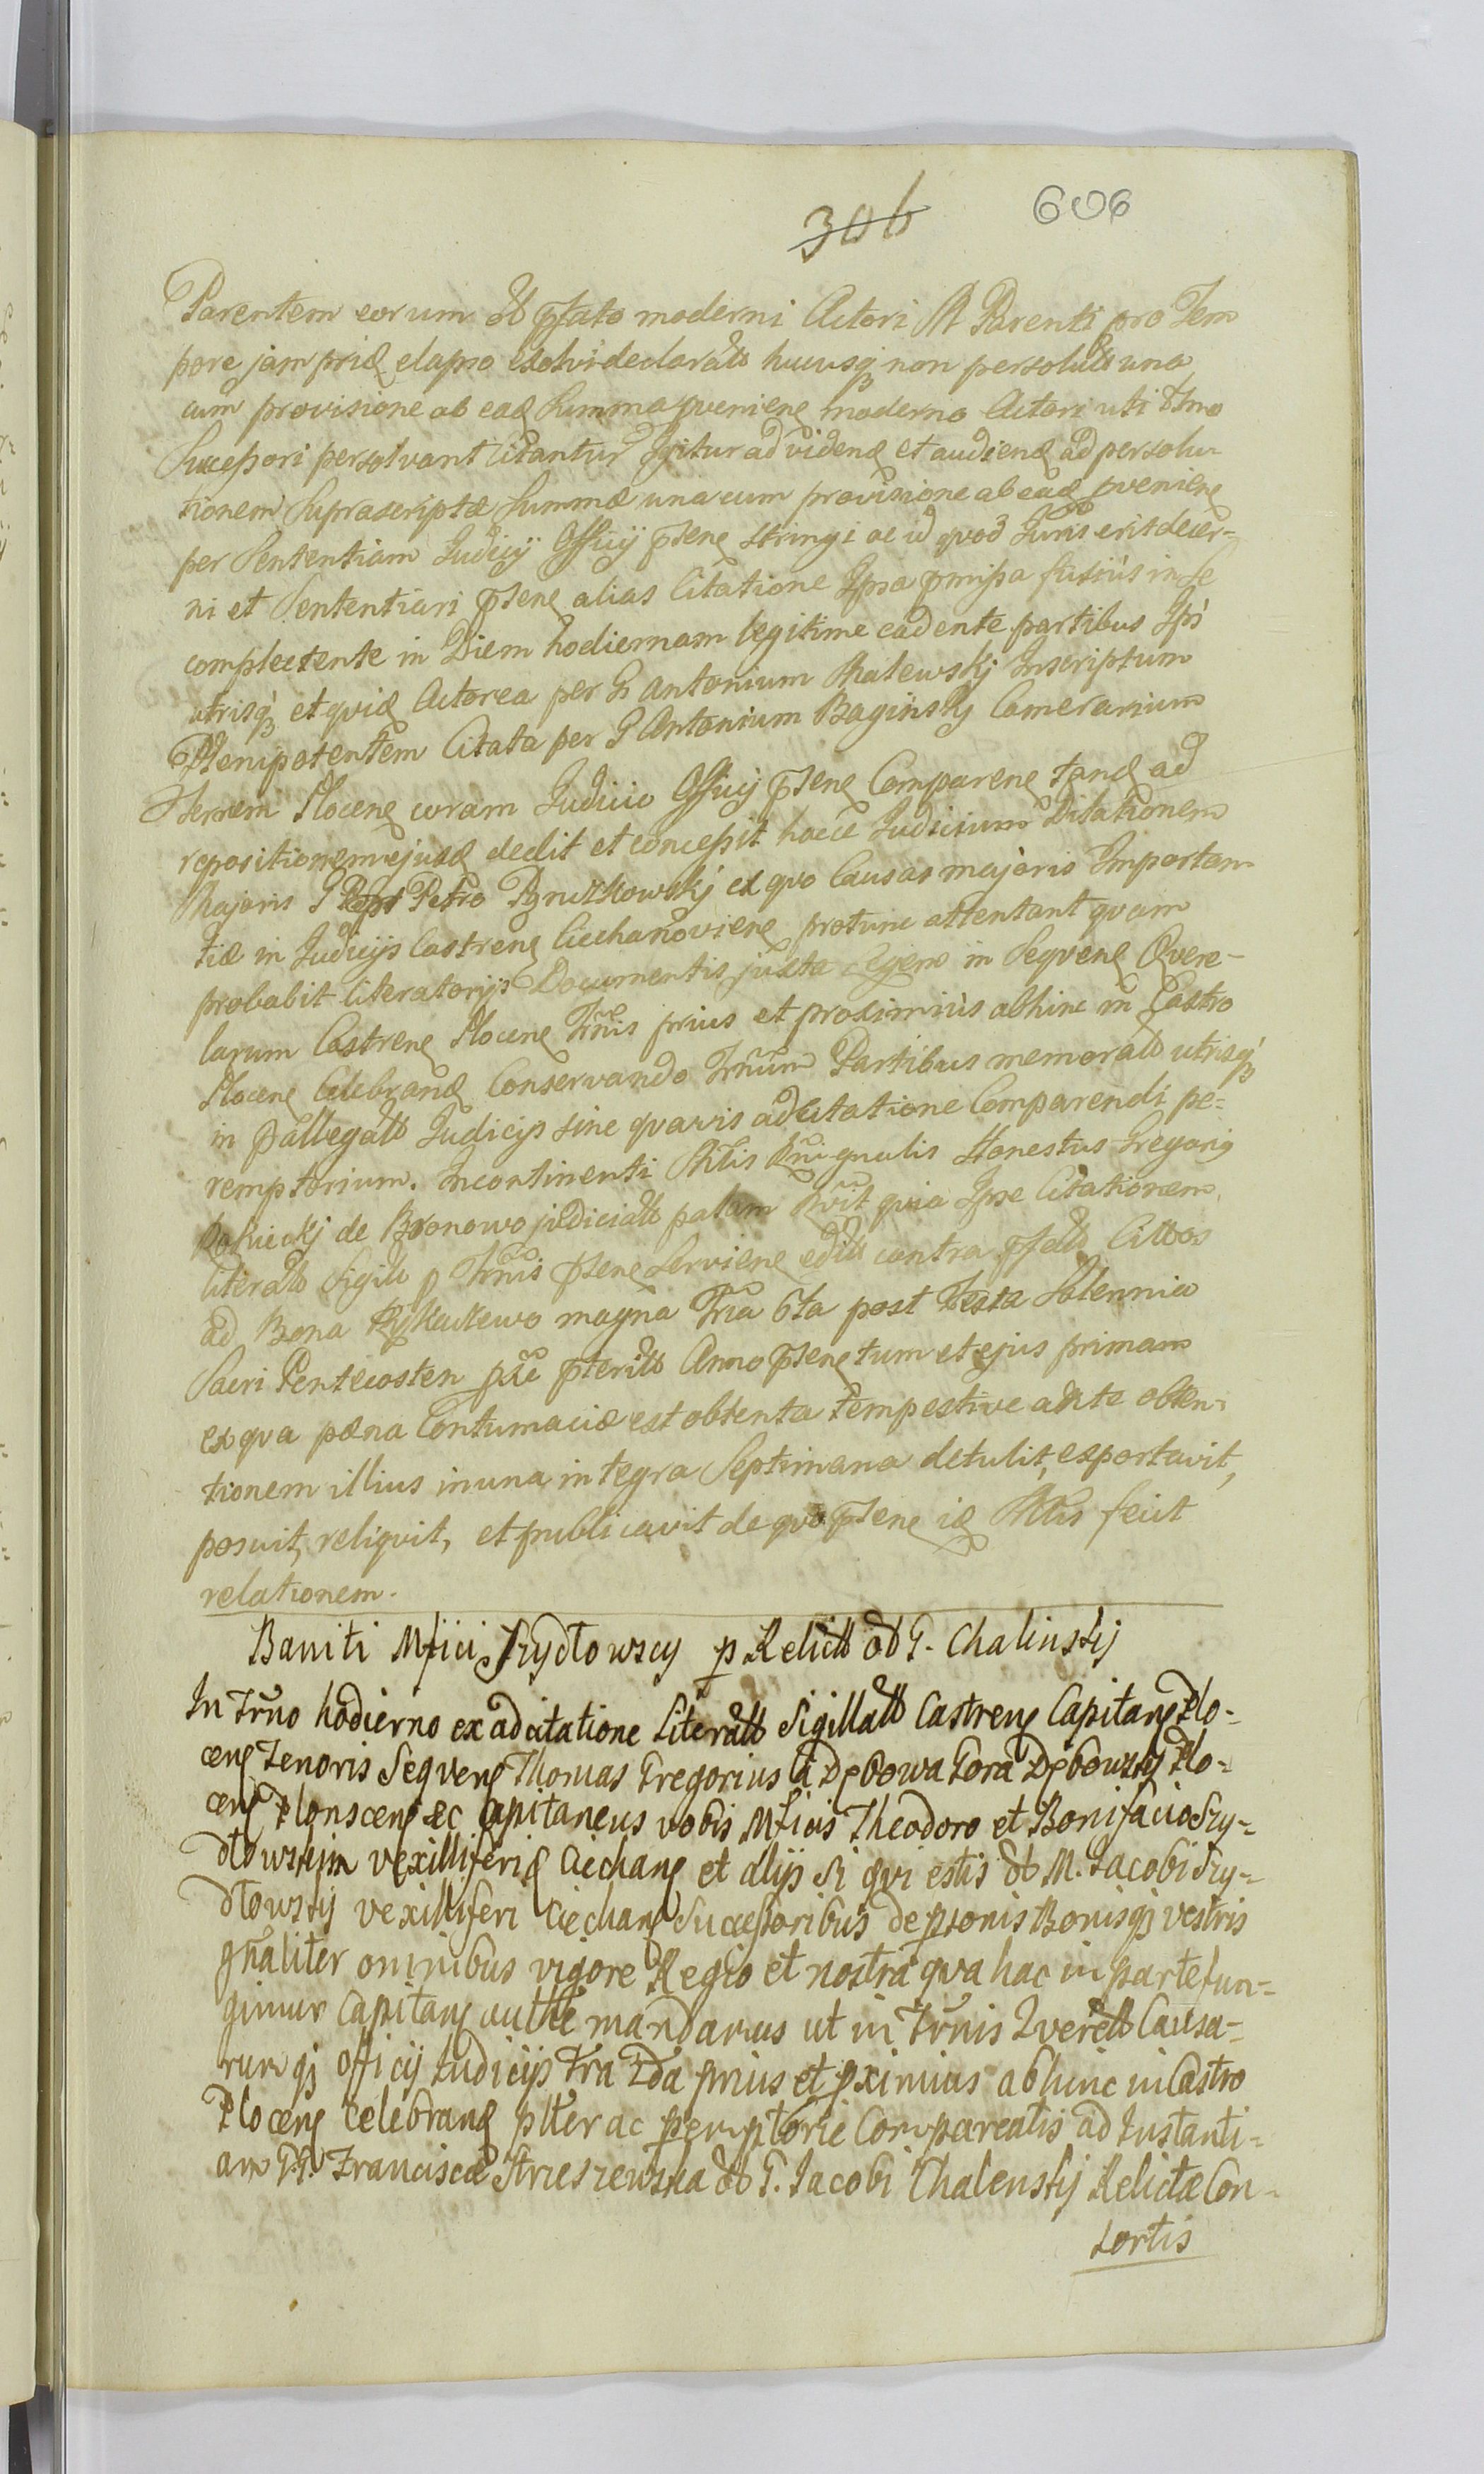 306 606
Parentem eorum ol pfato moderni Actori M Parenti pro Tem
pore jam prid elapso exolvi declaratt hucusq non persolutt una
cum provisione ab ead Summa pveniene moderno Actori uti ttmo
Successori persolvant citantur Igitur ad videnđ et audienđ ad persolu
tionem Suprascriptæ Summæ una cum provisione ab eađ pveniene
per Sententiam Judicij Officij psene stringi ac id quod Juris erit decer-
ni et Sententiari psene alias Citatione Ipsa pmissa fusius in se
complectente in Diem hodiernam legitime cadente partibus Ips
utrisq et quid Actorea per G Antonium Malewskj Inscriptum
Plenipotentem Citata per G Antonium Baginskj Camerarium
Terrem Plocene coram Judicio Officij psene Comparene tand ad
repositionem ejusd dedit et concessit hocce Judicium Dilationem
Majoris G Petro Pruzkowskj ex quo Causas majoris Importan
tiæ in Judicijs Castrene Ciechanoviene protunc attentant quam
probabit literatorijs Documentis juxta Legem in Seqvene Qvere-
larum Castrene Plocene Trnis prius et proximius abhinc in Castro
Plocene Celebranđ Conservando Trnum Partibus memoratt utrisq
in pallegatt Judicijs sine quavis adcitatione Comparendi pe-
remptorium. Incontinenti Mtlis Rni gnalis Honestus Gregorig
de Bronowo judicialt palam Rvit quia Ipse Citationem
literatt Sigilt p Trnis psene Serviene editt contra pfatt Cittos
ad Bona Rykaczewo magna Fria 6ta post Festa Solennia
Sacri Pentecosten pxe pteritt Anno psene tum et ejus primam
ex qva pæna Contumaciæ est obtenta tempestive ante obten-
tionem illius in una integra Septimana detulit, exportavit,
posuit, reliquit, et publicavit de quo psene id Mtlis fecit
relationem.
Baniti Mfici Szydłowscy p Relictt olt G. Chalinskij
In Trno hodierno ex adcitatione Literatt Sigillatt Castrene Capitane Plo-
cene Tenoris Seqvene Thomas Gregorius a Dębowa Gora Dębowskij Plo-
cene Plonscene ec Capitaneus vobis Mficis Theodoro et Bonifacio Szy-
dłowskim vexilliferid Ciechane et alijs Si qvi estis olt M. Jacobi Szy-
dłowskij vexilliferi Ciechane Successoribus de psonis Bonisq vestris
gnaliter omnibus vigore Regio et nostra qva hac in parte fun-
gimur Capitane authte mandamus ut in Trnis Qverett Causa-
rumq Officij Judicijs Fria 2da prius et pximius abhinc in Castro
Plocene Celebranđ plter ac pemptorie Compareatis ad Instanti-
am G. Franciscæ Strzeszewska olt G. Jacobi Chalenskij Relictæ Con-
sortis